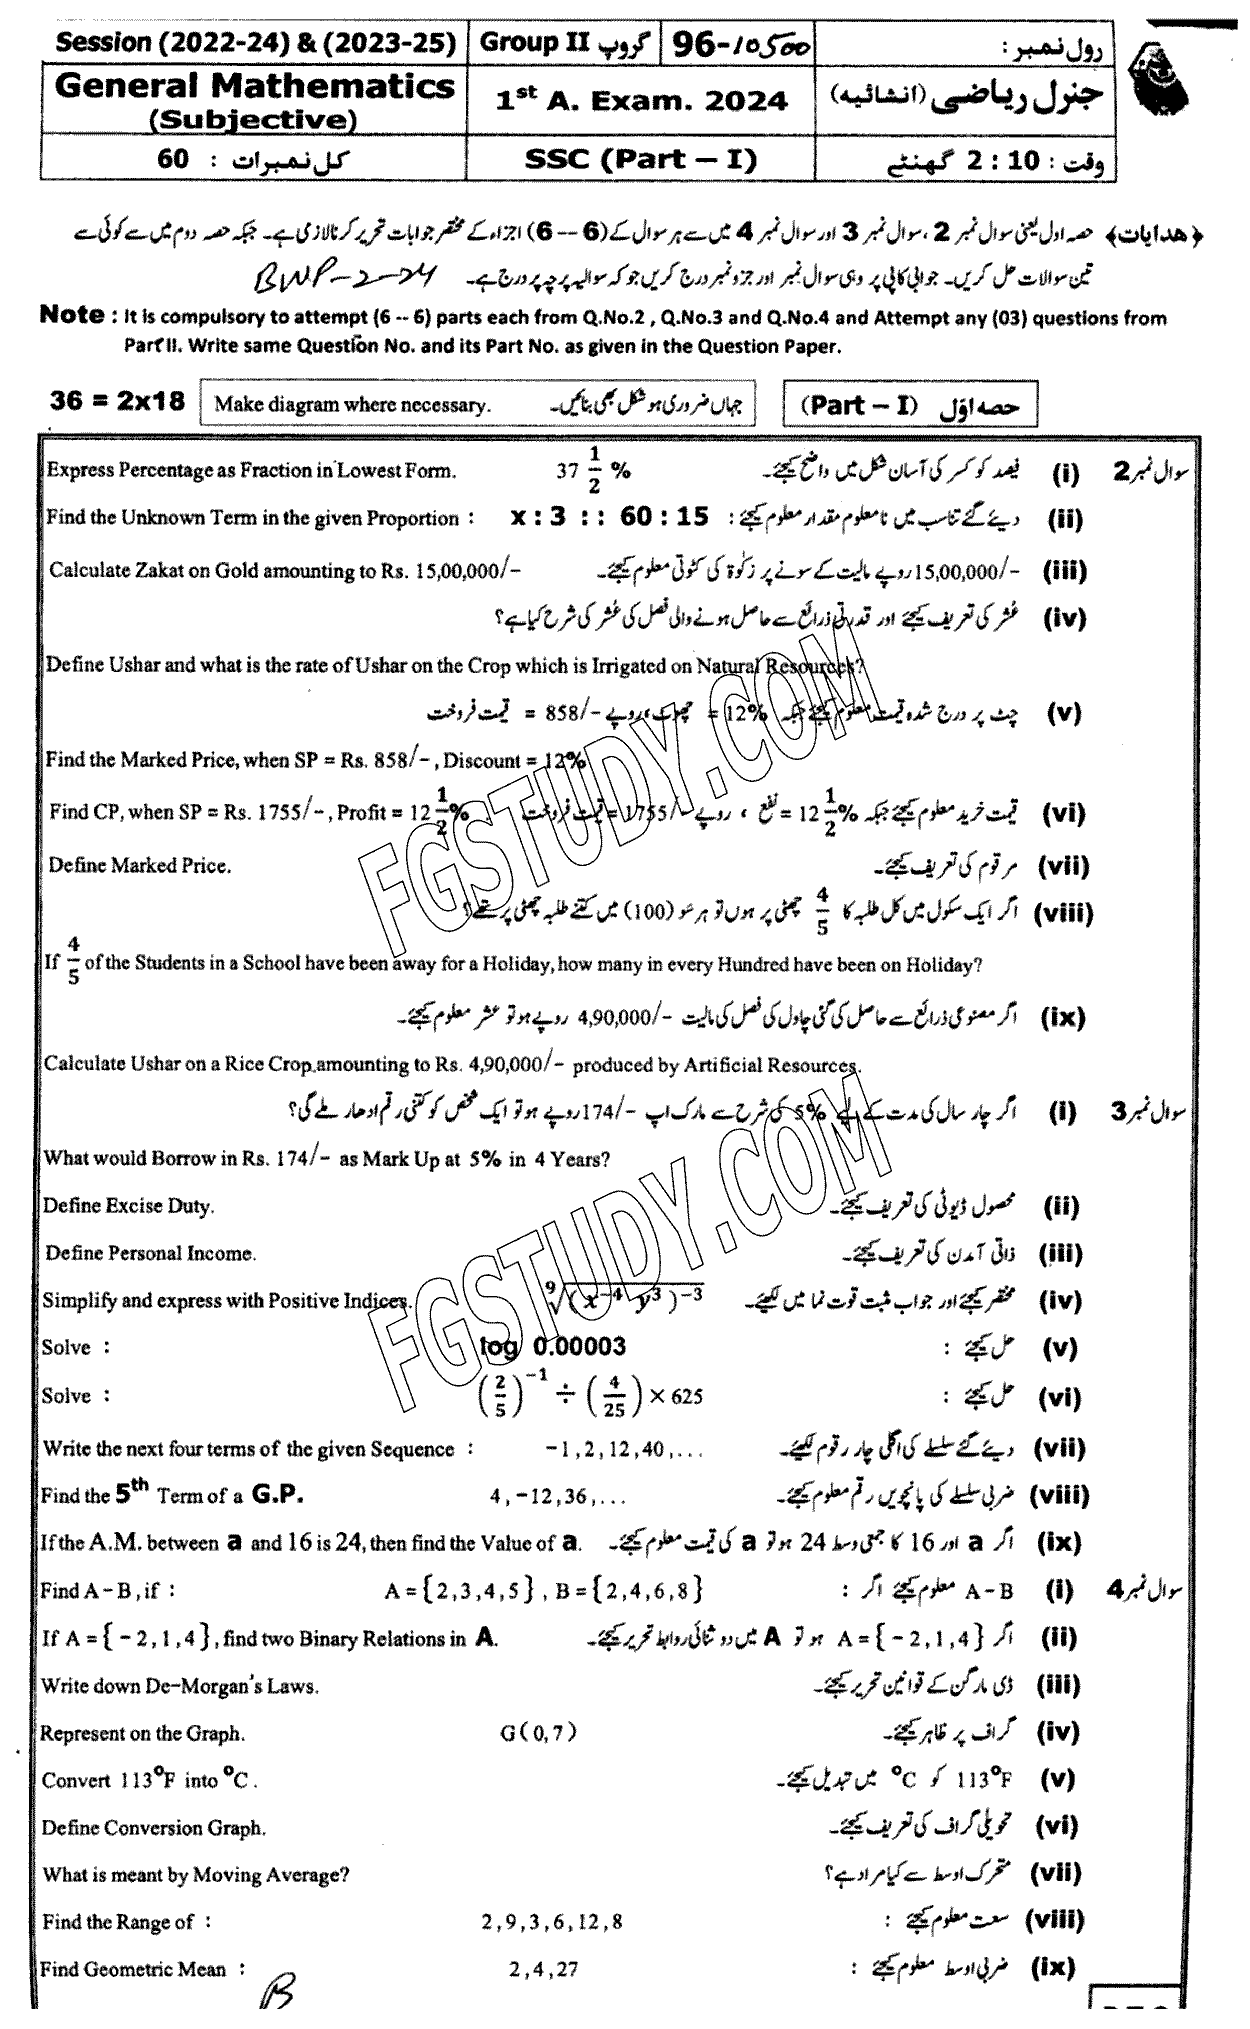 Session (2022-24) & (2023-25) Group II گروپ 96-10500 رول نمبر :
General Mathematics (Subjective) 1st A. Exam. 2024 جنرل ریاضی (انشائیہ)
کل نمبرات : 60 SSC (Part – I) وقت : 2 : 10 گھنٹے
﴿ھدایات﴾ حصہ اول یعنی سوال نمبر 2 ، سوال نمبر 3 اور سوال نمبر 4 میں سے ہر سوال کے (6 -- 6) اجزاء کے مختصر جوابات تحریر کرنا لازمی ہے۔ جبکہ حصہ دوم میں سے کوئی سے
تین سوالات حل کریں۔ جوابی کاپی پر وہی سوال نمبر اور جزو نمبر درج کریں جو کہ سوالیہ پرچہ پر درج ہے۔ BWP-2-24
Note : It is compulsory to attempt (6 -- 6) parts each from Q.No.2 , Q.No.3 and Q.No.4 and Attempt any (03) questions from
Part II. Write same Question No. and its Part No. as given in the Question Paper.
36 = 2x18 Make diagram where necessary. جہاں ضروری ہو شکل بھی بنائیں۔ (Part – I) حصہ اوّل
Express Percentage as Fraction in Lowest Form. 37 1/2 % فیصد کو کسر کی آسان شکل میں واضح کیجئے۔ (i) سوال نمبر 2
Find the Unknown Term in the given Proportion : x : 3 : : 60 : 15 دیئے گئے تناسب میں نامعلوم مقدار معلوم کیجئے : (ii)
Calculate Zakat on Gold amounting to Rs. 15,00,000/- 15,00,000/- روپے مالیت کے سونے پر زکوٰۃ کی کٹوتی معلوم کیجئے۔ (iii)
عُشر کی تعریف کیجئے اور قدرتی ذرائع سے حاصل ہونے والی فصل کی عُشر کی شرح کیا ہے؟ (iv)
Define Ushar and what is the rate of Ushar on the Crop which is Irrigated on Natural Resources?
چٹ پر درج شدہ قیمت معلوم کیجئے جبکہ 12% = چھوٹ ، روپے 858/- = قیمت فروخت (v)
Find the Marked Price, when SP = Rs. 858/- , Discount = 12%
Find CP, when SP = Rs. 1755/- , Profit = 12 1/2 % . قیمت خرید معلوم کیجئے جبکہ 12 1/2 % = نفع ، روپے 1755/- = قیمت فروخت (vi)
Define Marked Price. مرقوم کی تعریف کیجئے۔ (vii)
اگر ایک سکول میں کل طلبہ کا 4/5 چھٹی پر ہوں تو ہر سو (100) میں کتنے طلبہ چھٹی پر تھے؟ (viii)
If 4/5 of the Students in a School have been away for a Holiday, how many in every Hundred have been on Holiday?
اگر مصنوعی ذرائع سے حاصل کی گئی چاول کی فصل کی مالیت 4,90,000/- روپے ہو تو عشر معلوم کیجئے۔ (ix)
Calculate Ushar on a Rice Crop amounting to Rs. 4,90,000/- produced by Artificial Resources.
اگر چار سال کی مدت کے لیے 5% کی شرح سے مارک اپ 174/- روپے ہو تو ایک شخص کو کتنی رقم ادھار ملے گی؟ (i) سوال نمبر 3
What would Borrow in Rs. 174/- as Mark Up at 5% in 4 Years?
Define Excise Duty. محصول ڈیوٹی کی تعریف کیجئے۔ (ii)
Define Personal Income. ذاتی آمدن کی تعریف کیجئے۔ (iii)
Simplify and express with Positive Indices. ⁹√(x⁻⁴ y³)⁻³ مختصر کیجئے اور جواب مثبت قوت نما میں لکھئے۔ (iv)
Solve : log 0.00003 حل کیجئے : (v)
Solve : (2/5)⁻¹ ÷ (4/25) × 625 حل کیجئے : (vi)
Write the next four terms of the given Sequence : -1,2,12,40,... دیئے گئے سلسلے کی اگلی چار رقوم لکھئے۔ (vii)
Find the 5th Term of a G.P. 4,-12,36,... ضربی سلسلے کی پانچویں رقم معلوم کیجئے۔ (viii)
If the A.M. between a and 16 is 24, then find the Value of a. اگر a اور 16 کا جمعی وسط 24 ہو تو a کی قیمت معلوم کیجئے۔ (ix)
Find A – B , if : A = {2,3,4,5} , B = {2,4,6,8} A – B معلوم کیجئے اگر : (i) سوال نمبر 4
If A = { – 2, 1, 4 } , find two Binary Relations in A. اگر A = { – 2, 1, 4 } ہو تو A میں دو ثنائی روابط تحریر کیجئے۔ (ii)
Write down De-Morgan's Laws. ڈی مارگن کے قوانین تحریر کیجئے۔ (iii)
Represent on the Graph. G(0,7) گراف پر ظاہر کیجئے۔ (iv)
Convert 113°F into °C . 113°F کو °C میں تبدیل کیجئے۔ (v)
Define Conversion Graph. تحویلی گراف کی تعریف کیجئے۔ (vi)
What is meant by Moving Average? متحرک اوسط سے کیا مراد ہے؟ (vii)
Find the Range of : 2,9,3,6,12,8 سعت معلوم کیجئے : (viii)
Find Geometric Mean : 2,4,27 ضربی اوسط معلوم کیجئے : (ix)
B
FGSTUDY.COM
FGSTUDY.COM